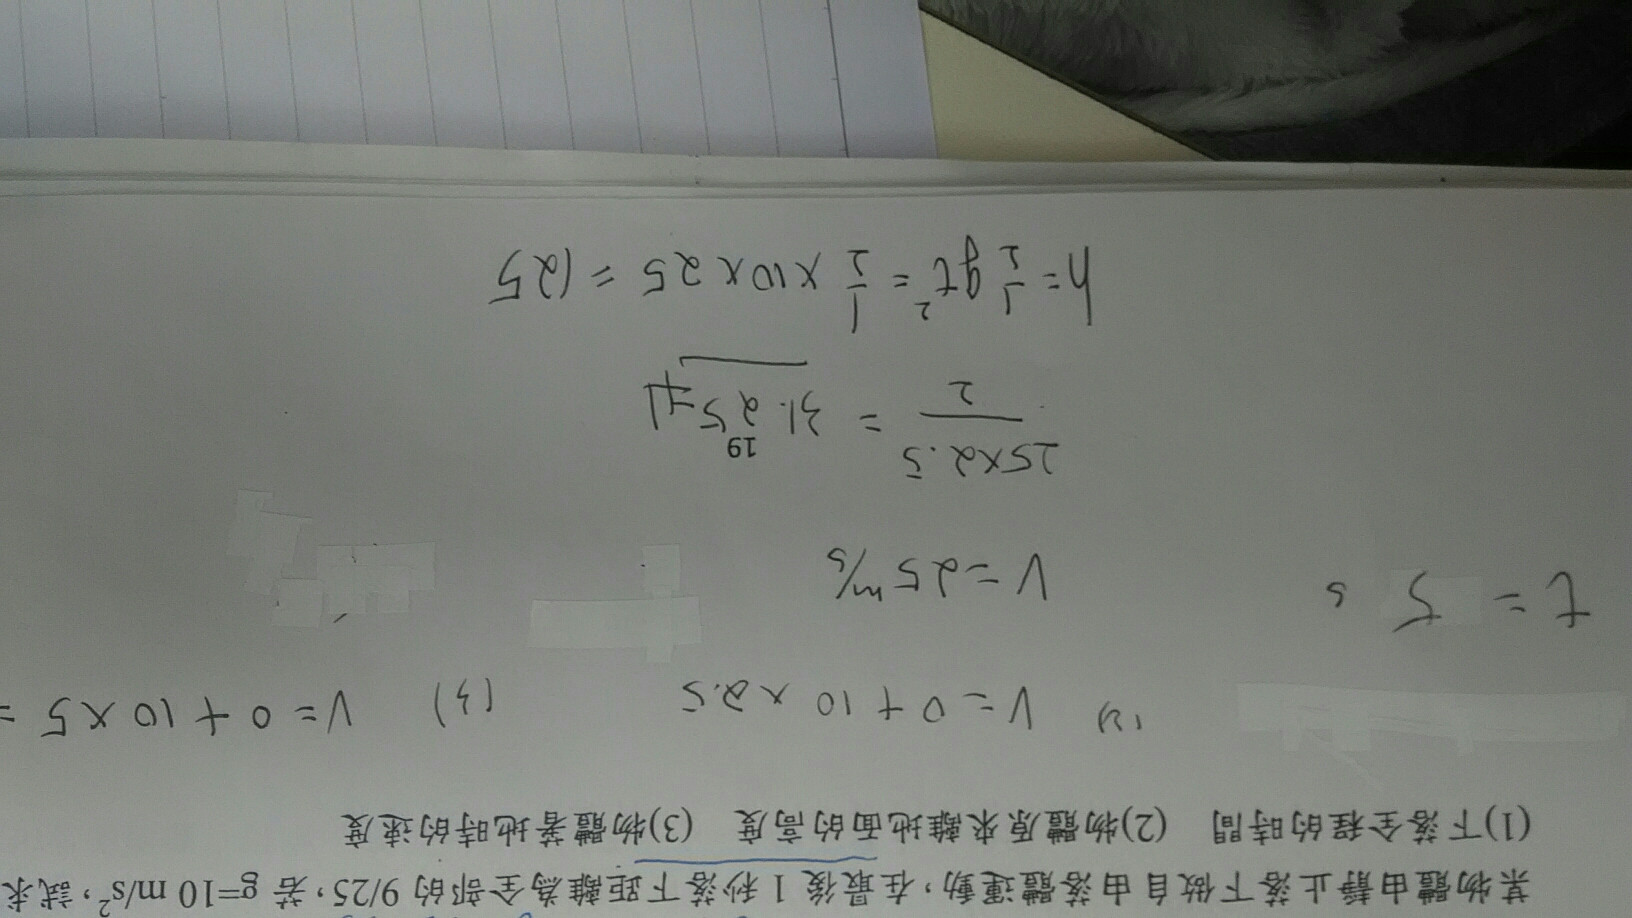 某物體由靜止落下做自由落體運動，在最後 1 秒落下距離為全部的 9/25，若 g=10 m/s²，試求
(1)下落全程的時間 (2)物體原來離地面的高度 (3)物體著地時的速度
(2) V=0+10×2.5 (3) V=0+10×5=
t=5 s V=25 m/s
25×2.5/2 = 31.25
19
h=1/2 gt²=1/2×10×25=125